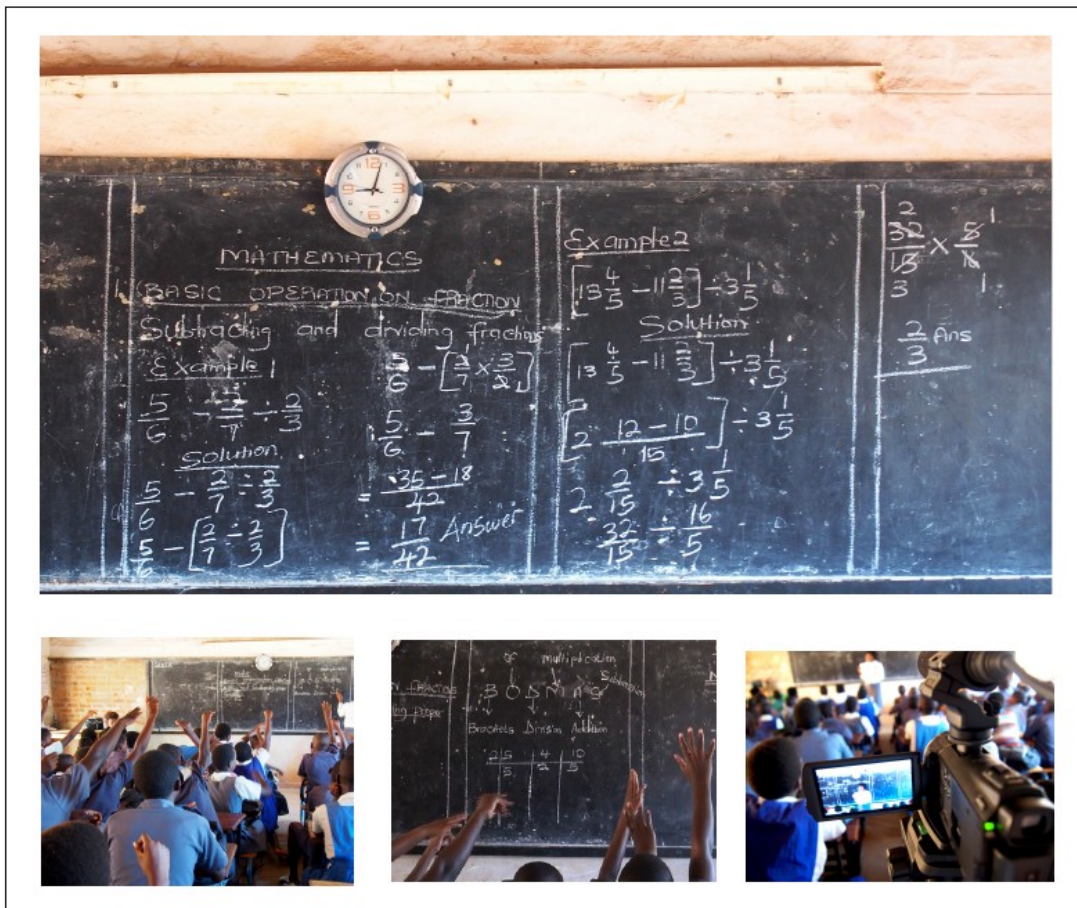 12
9 3
MATHEMATICS
1. BASIC OPERATION ON FRACTION
Subtracting and dividing fractions
Example 1
5/6 - 2/7 ÷ 2/3
Solution
5/6 - 2/7 ÷ 2/3
5/6 - [2/7 ÷ 2/3]
5/6 - [2/7 × 3/2]
5/6 - 3/7
= 35 - 18 / 42
= 17/42 Answer
Example 2
[13 4/5 - 11 2/3] ÷ 3 1/5
Solution
[13 4/5 - 11 2/3] ÷ 3 1/5
[2 12 - 10 / 15] ÷ 3 1/5
2 2/15 ÷ 3 1/5
32/15 ÷ 16/5
2 1
32/15 × 5/16
3 1
2/3 Ans
Of multiplication
Subtraction
B O D M A S
Brackets Division Addition